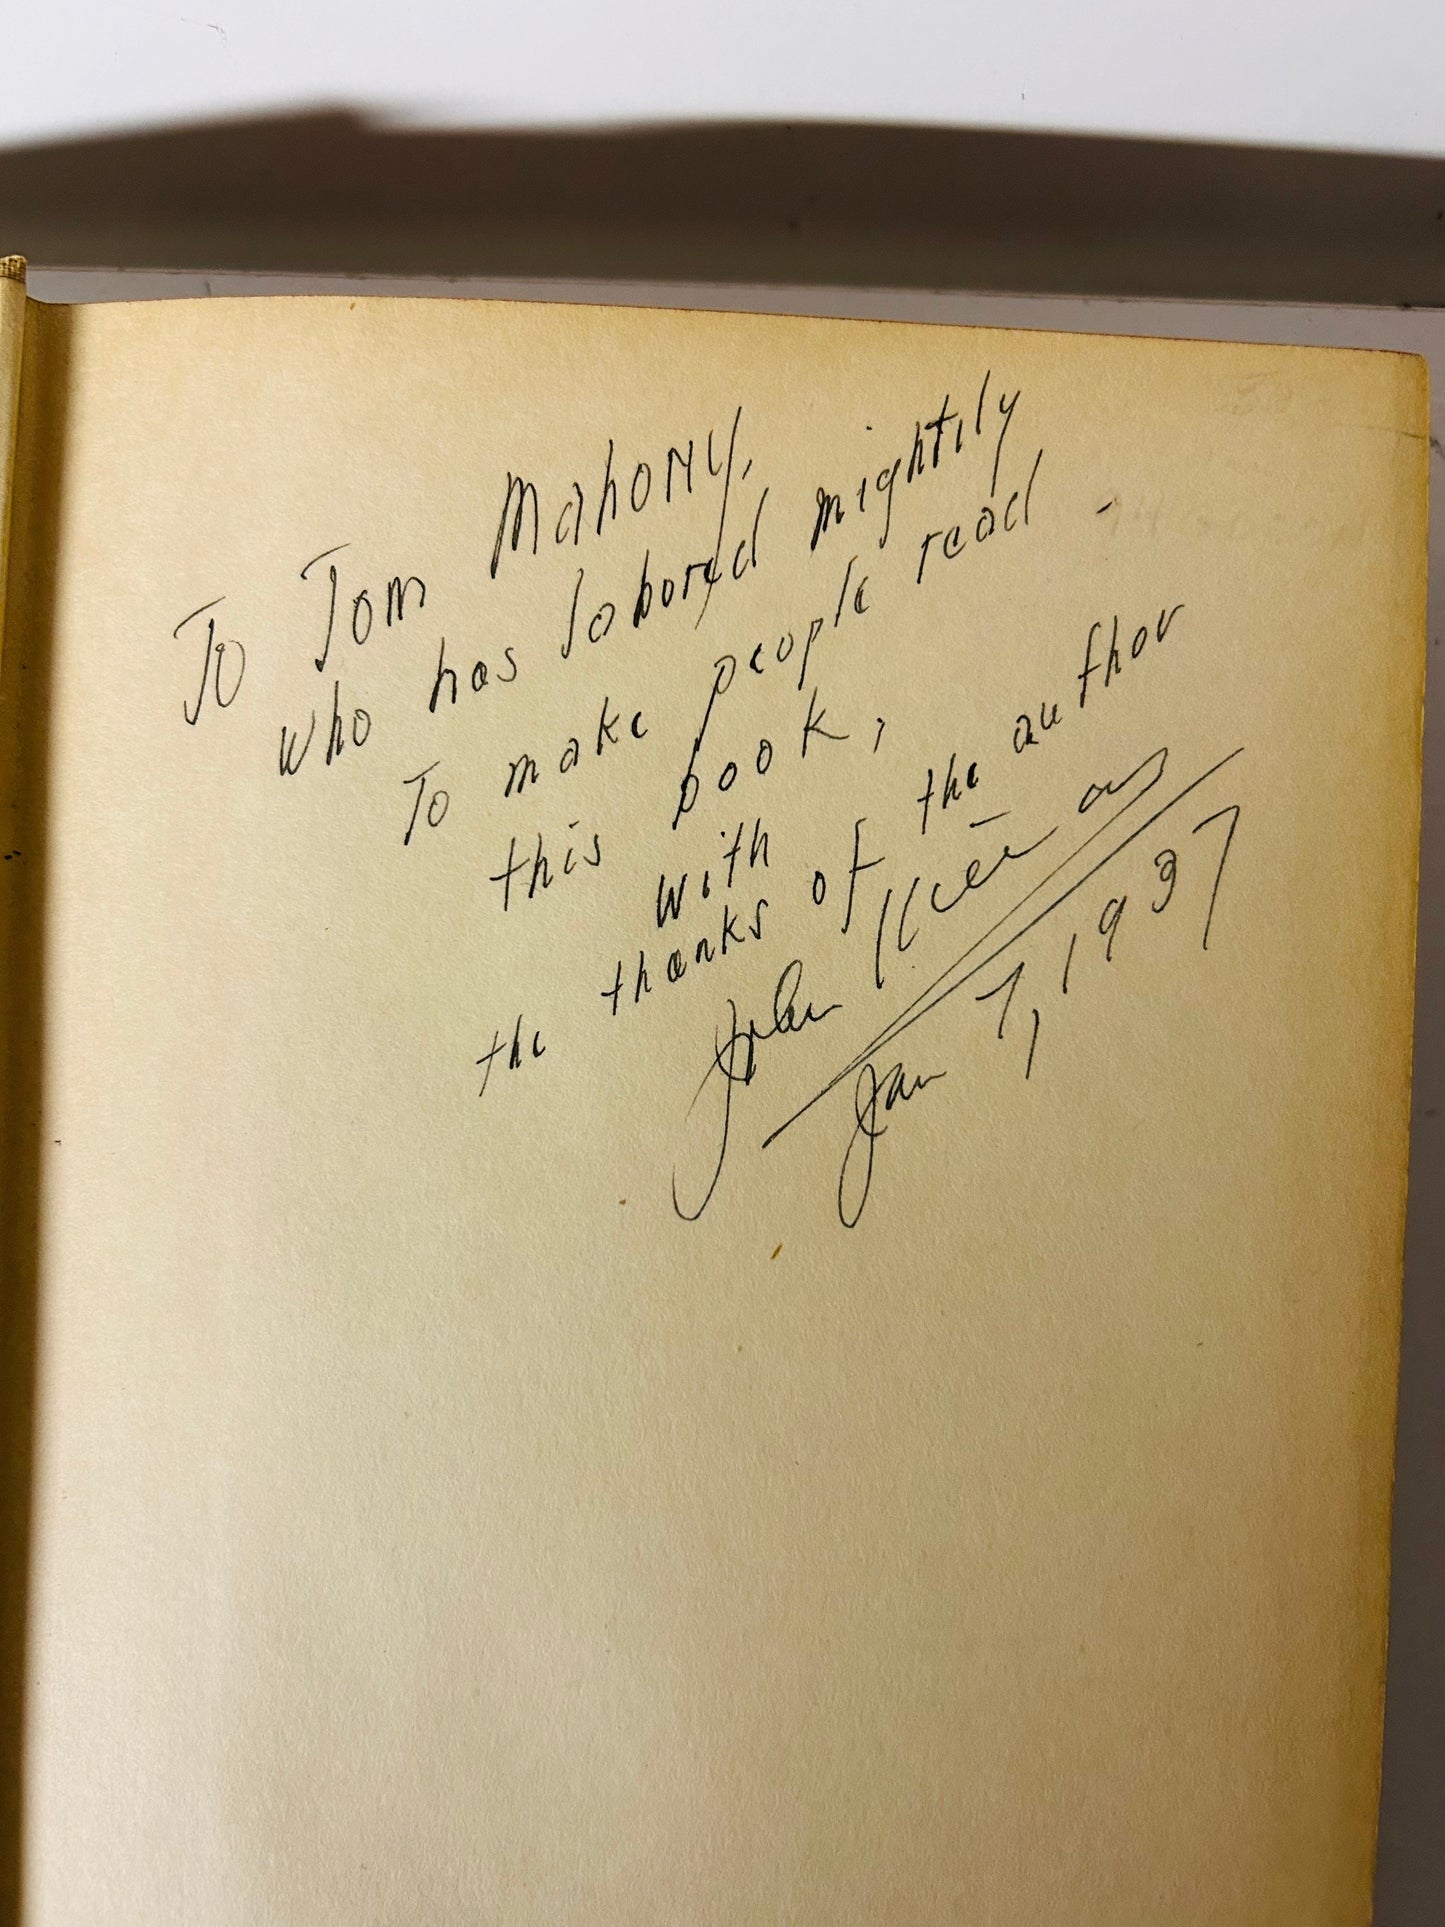 To Tom Mahony,
who has labored mightily
To make people read -
this book,
with
the thanks of the author
John Kieran
Jan 7, 1937